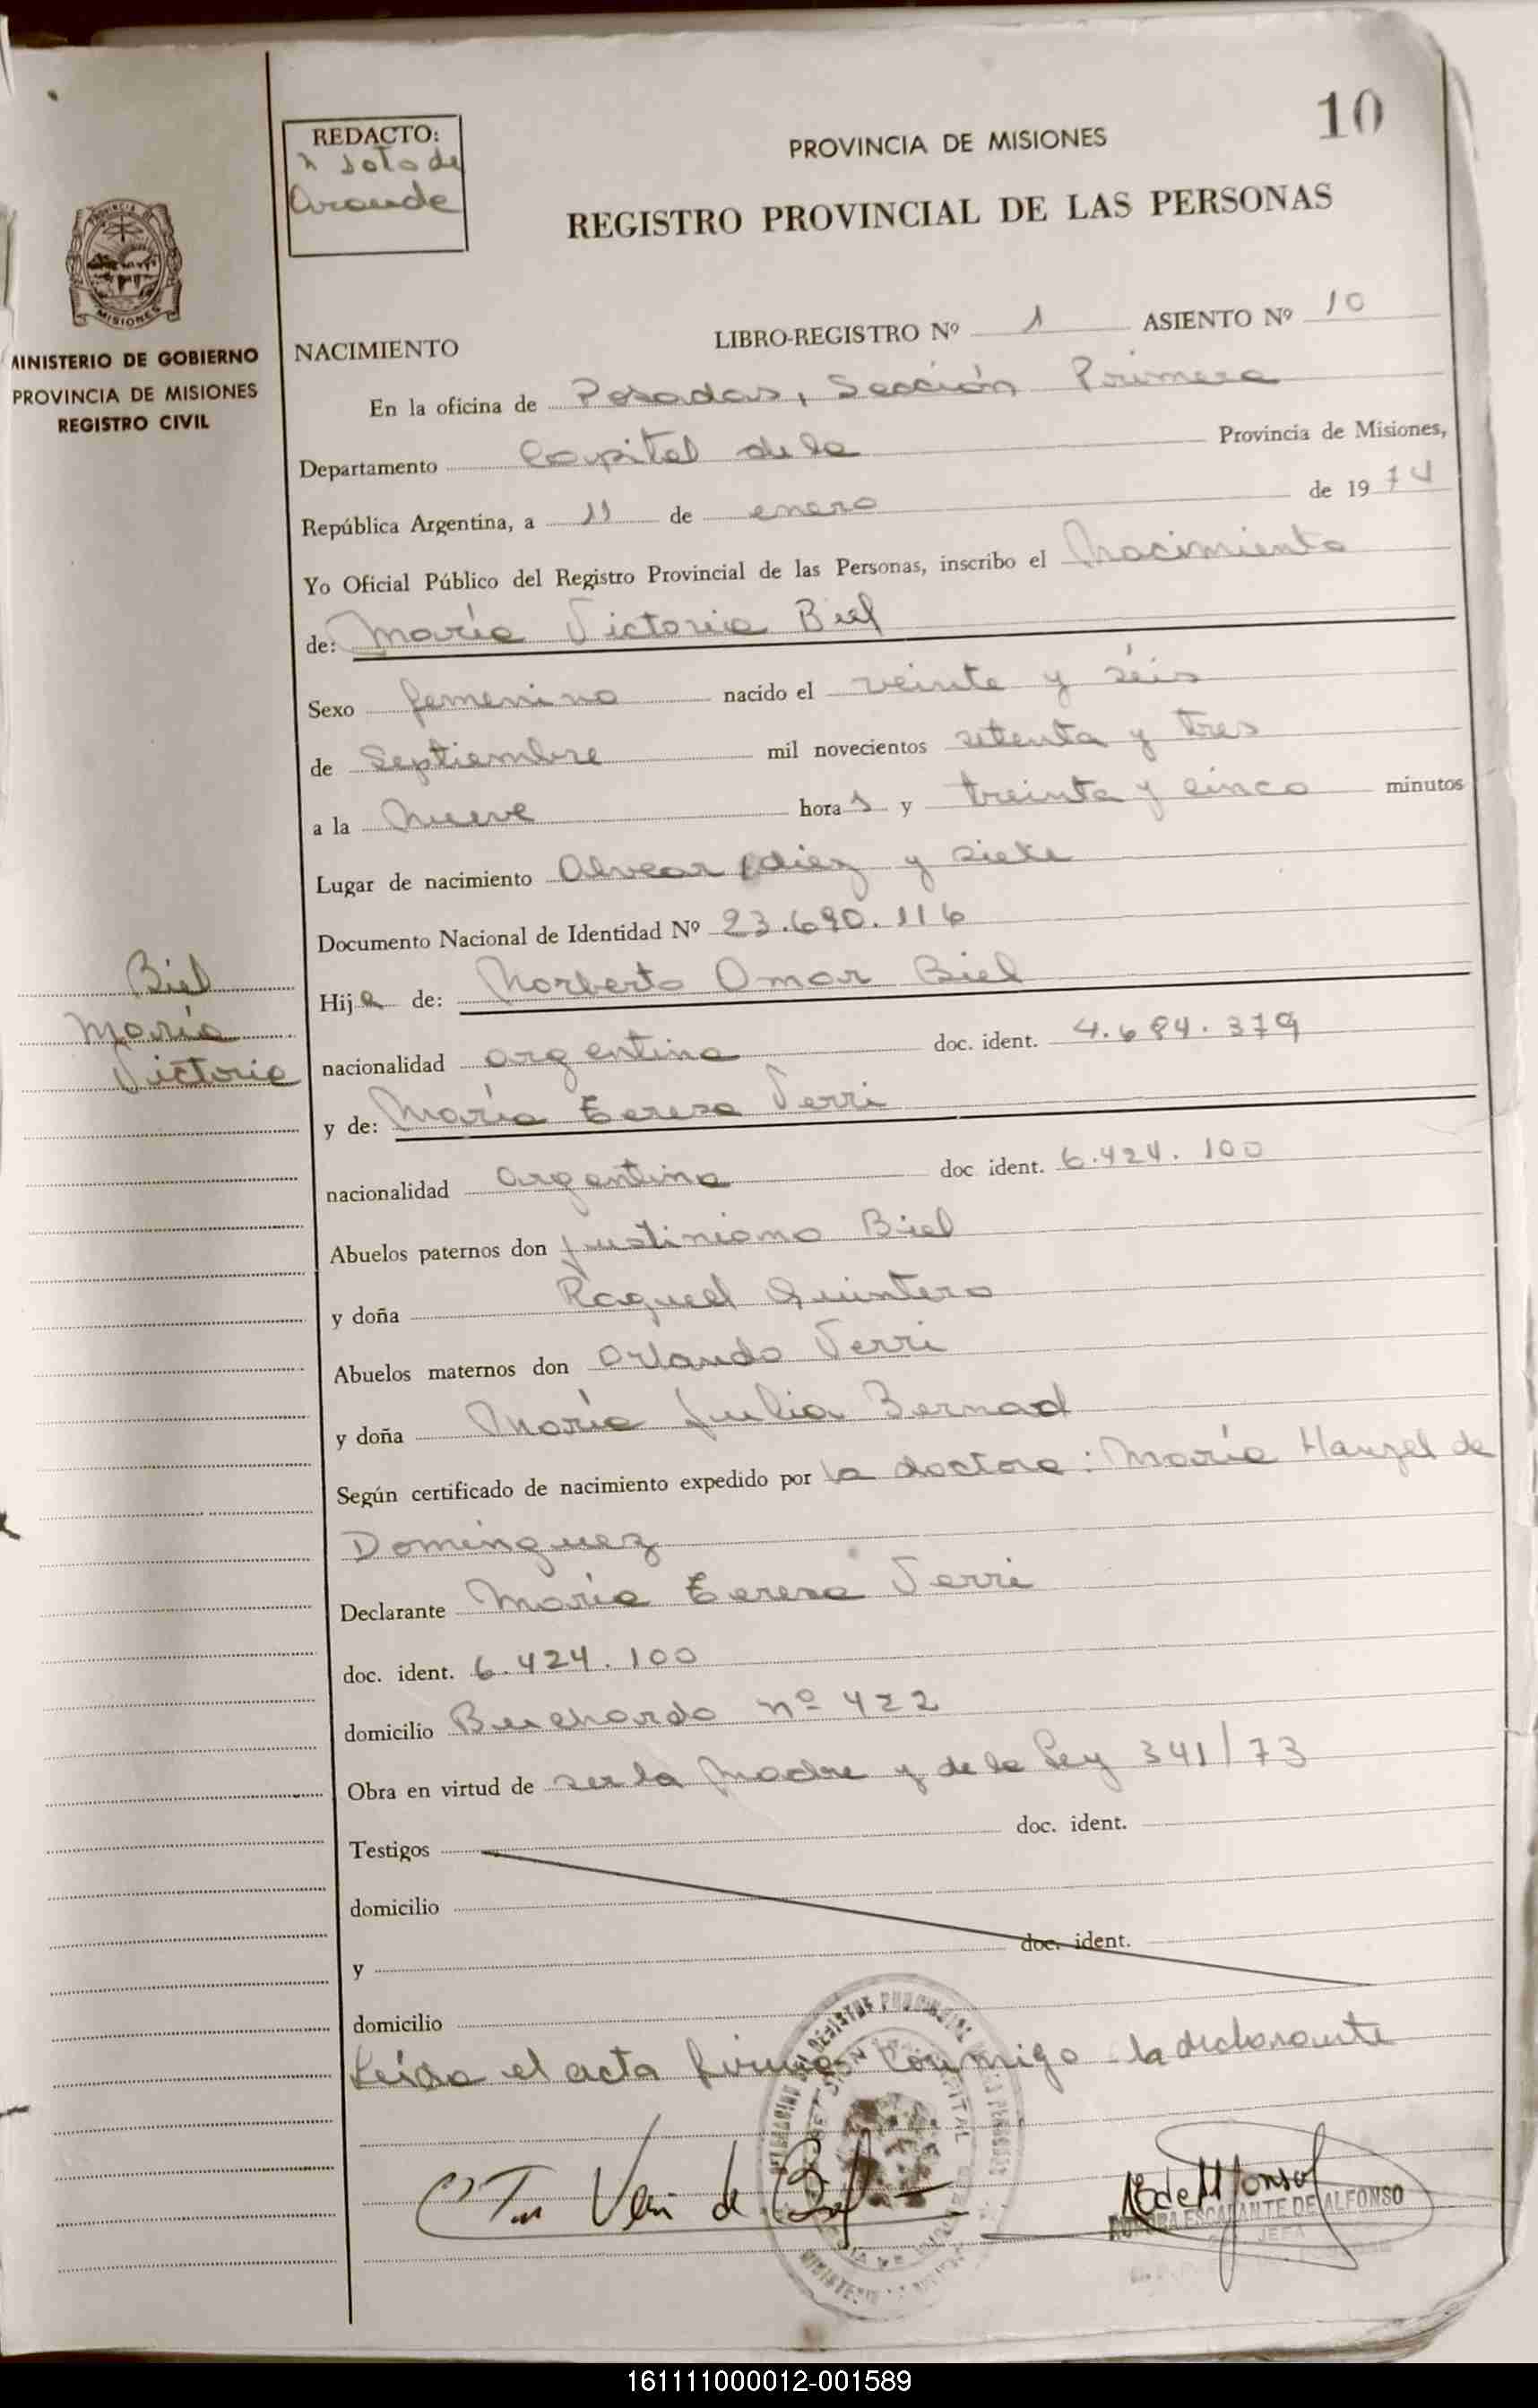 10
REDACTO:
Soto de
PROVINCIA DE MISIONES
REGISTRO PROVINCIAL DE LAS PERSONAS
PROVINCIA DE
MISIONES
MINISTERIO DE GOBIERNO
PROVINCIA DE MISIONES
REGISTRO CIVIL
NACIMIENTO LIBRO-REGISTRO Nº 1 ASIENTO Nº 10
En la oficina de Posadas, Sección Primera
Departamento Capital de la Provincia de Misiones,
República Argentina, a 11 de enero de 1974
Yo Oficial Público del Registro Provincial de las Personas, inscribo el Nacimiento
de: María Victoria Biel
Sexo femenino nacido el veinte y séis
de Septiembre mil novecientos setenta y tres
a la Nueve horas y treinta y cinco minutos
Lugar de nacimiento Alvear diez y siete
Documento Nacional de Identidad Nº 23.690.116
Biel
María
Victoria
Hija de: Norberto Omar Biel
nacionalidad argentina doc. ident. 4.684.379
y de: María Teresa Verri
nacionalidad argentina doc ident. 6.424.100
Abuelos paternos don Justiniano Biel
y doña Raquel Quintero
Abuelos maternos don Orlando Verri
y doña María Julia Bernad
Según certificado de nacimiento expedido por la doctora: María Hanzel de
Dominguez
Declarante María Teresa Verri
doc. ident. 6.424.100
domicilio Buchardo nº 422
Obra en virtud de ser la Madre y de la Ley 341/73
Testigos doc. ident.
domicilio
y doc. ident.
domicilio
Leída el acta firma conmigo la declarante
AURORA ESCARANTE DE ALFONSO
JEFA
161111000012-001589